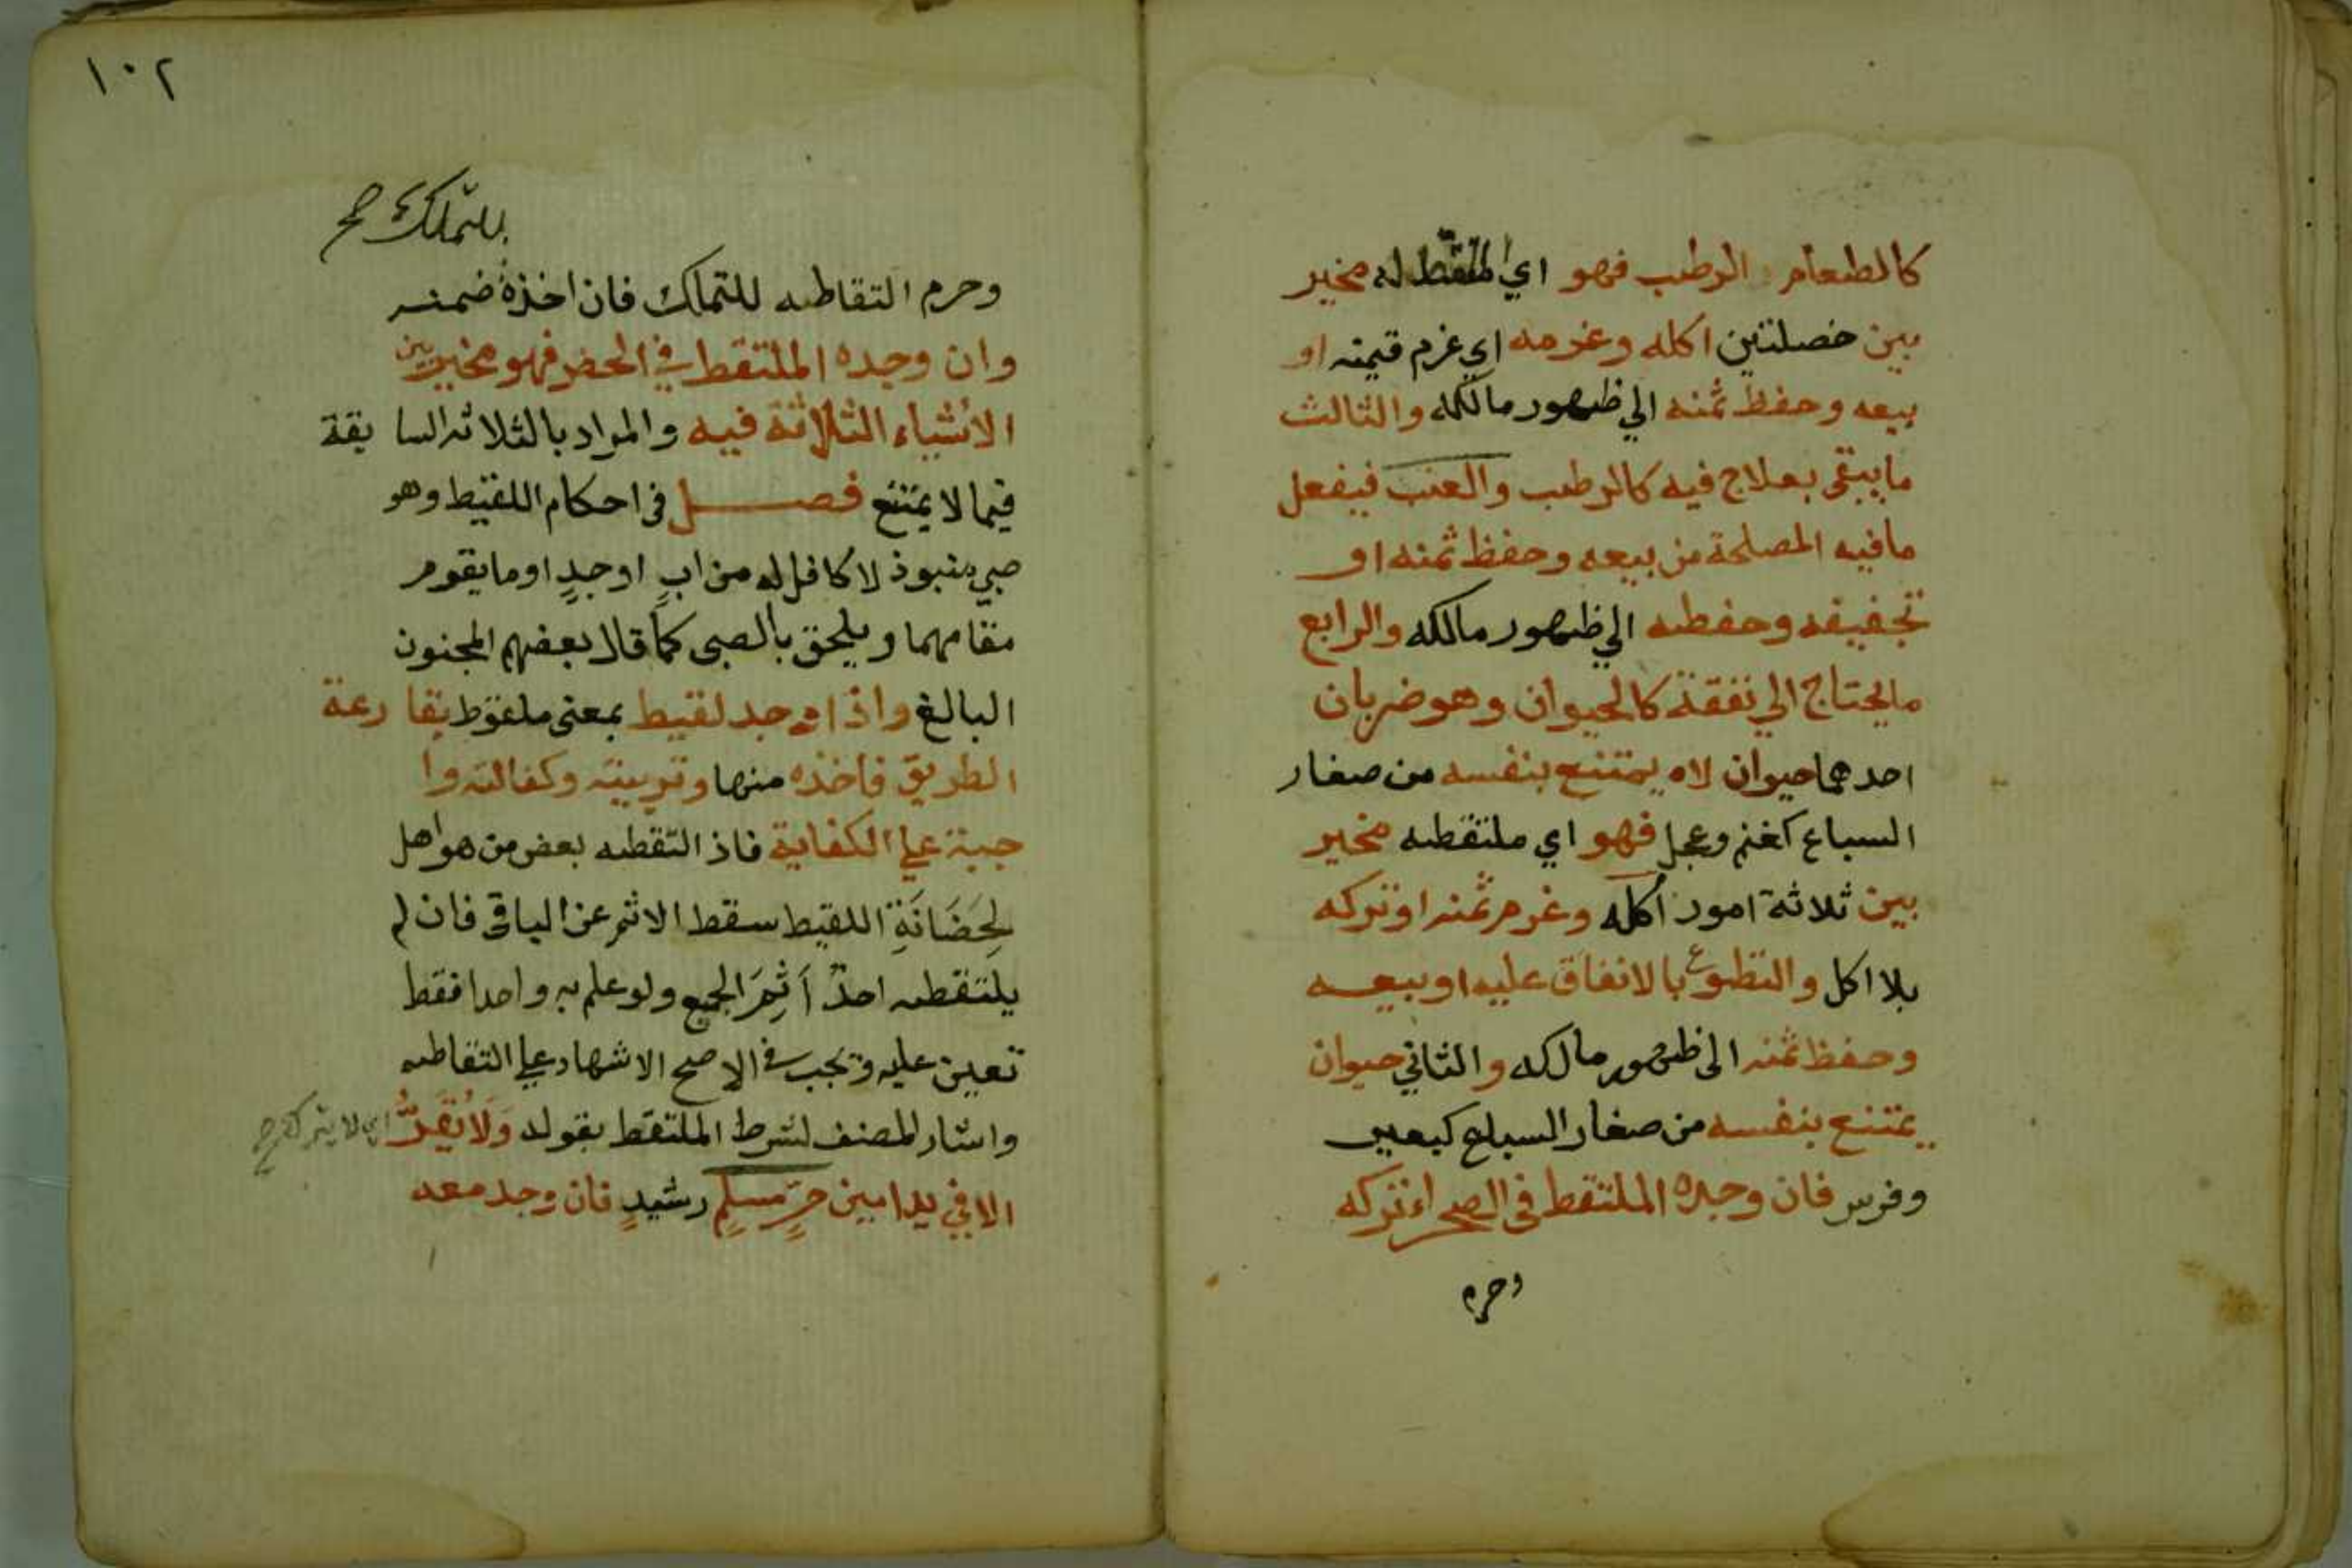 كالطعام الرطب فهو اي الملتقط له مخير
بين خصلتين اكله وغرمه اي غرم قيمته او
بيعه وحفظ ثمنه الي ظهور مالكه والثالث
ما يبقى بعلاج فيه كالرطب والعنب فيفعل
ما فيه المصلحة من بيعه وحفظ ثمنه او
تجفيفه وحفطه الي ظهور مالكه والرابع
ما يحتاج الي نفقة كالحيوان وهو ضربان
احدهما حيوان لا يمتنع بنفسه من صغار
السباع كغنم وعجل فهو اي ملتقطه مخير
بين ثلاثة امور اكله وغرم ثمنه او تركه
بلا اكل والتطوع بالانفاق عليه او بيعه
وحفظ ثمنه الى ظهور مالكه والثاني حيوان
يمتنع بنفسه من صغار السباع كبعير
وفرس فان وجده الملتقط في الصحراء تركه
وحرم
١٠٢
للتملك صح
وحرم التقاطه للتملك فان اخذه ضمنه
وان وجده الملتقط في الحضر فهو مخير بين
الأشياء الثلاثة فيه والمراد بالثلاثه السا بقة
فيما لا يمتنع فصل في احكام اللقيط وهو
صبي منبوذ لا كافل له من ابٍ او جدٍ او ما يقوم
مقامهما ويلحق بالصبى كما قال بعضهم المجنون
البالغ واذا وجد لقيط بمعنى ملقوط بقا رعة
الطريق فاخذه منها وتربيته وكفالته وا
جبة علي الكفاية فاذ التقطه بعض من هو اهل
لِحَضَانَةِ اللقيط سقط الاثم عن الباقي فان لم
يلتقطه احدٌ أَثِمَ الجميع ولو علم به واحدا فقط
تعين عليه وتجب في الاصح الاشهاد علي التقاطه
واشار المصنف لشرط الملتقط بقوله وَلَا يُقَرُّ اي لا يترك صح
الا في يد امين حرٍّ مسلمٍ رشيدٍ فان وجد معه